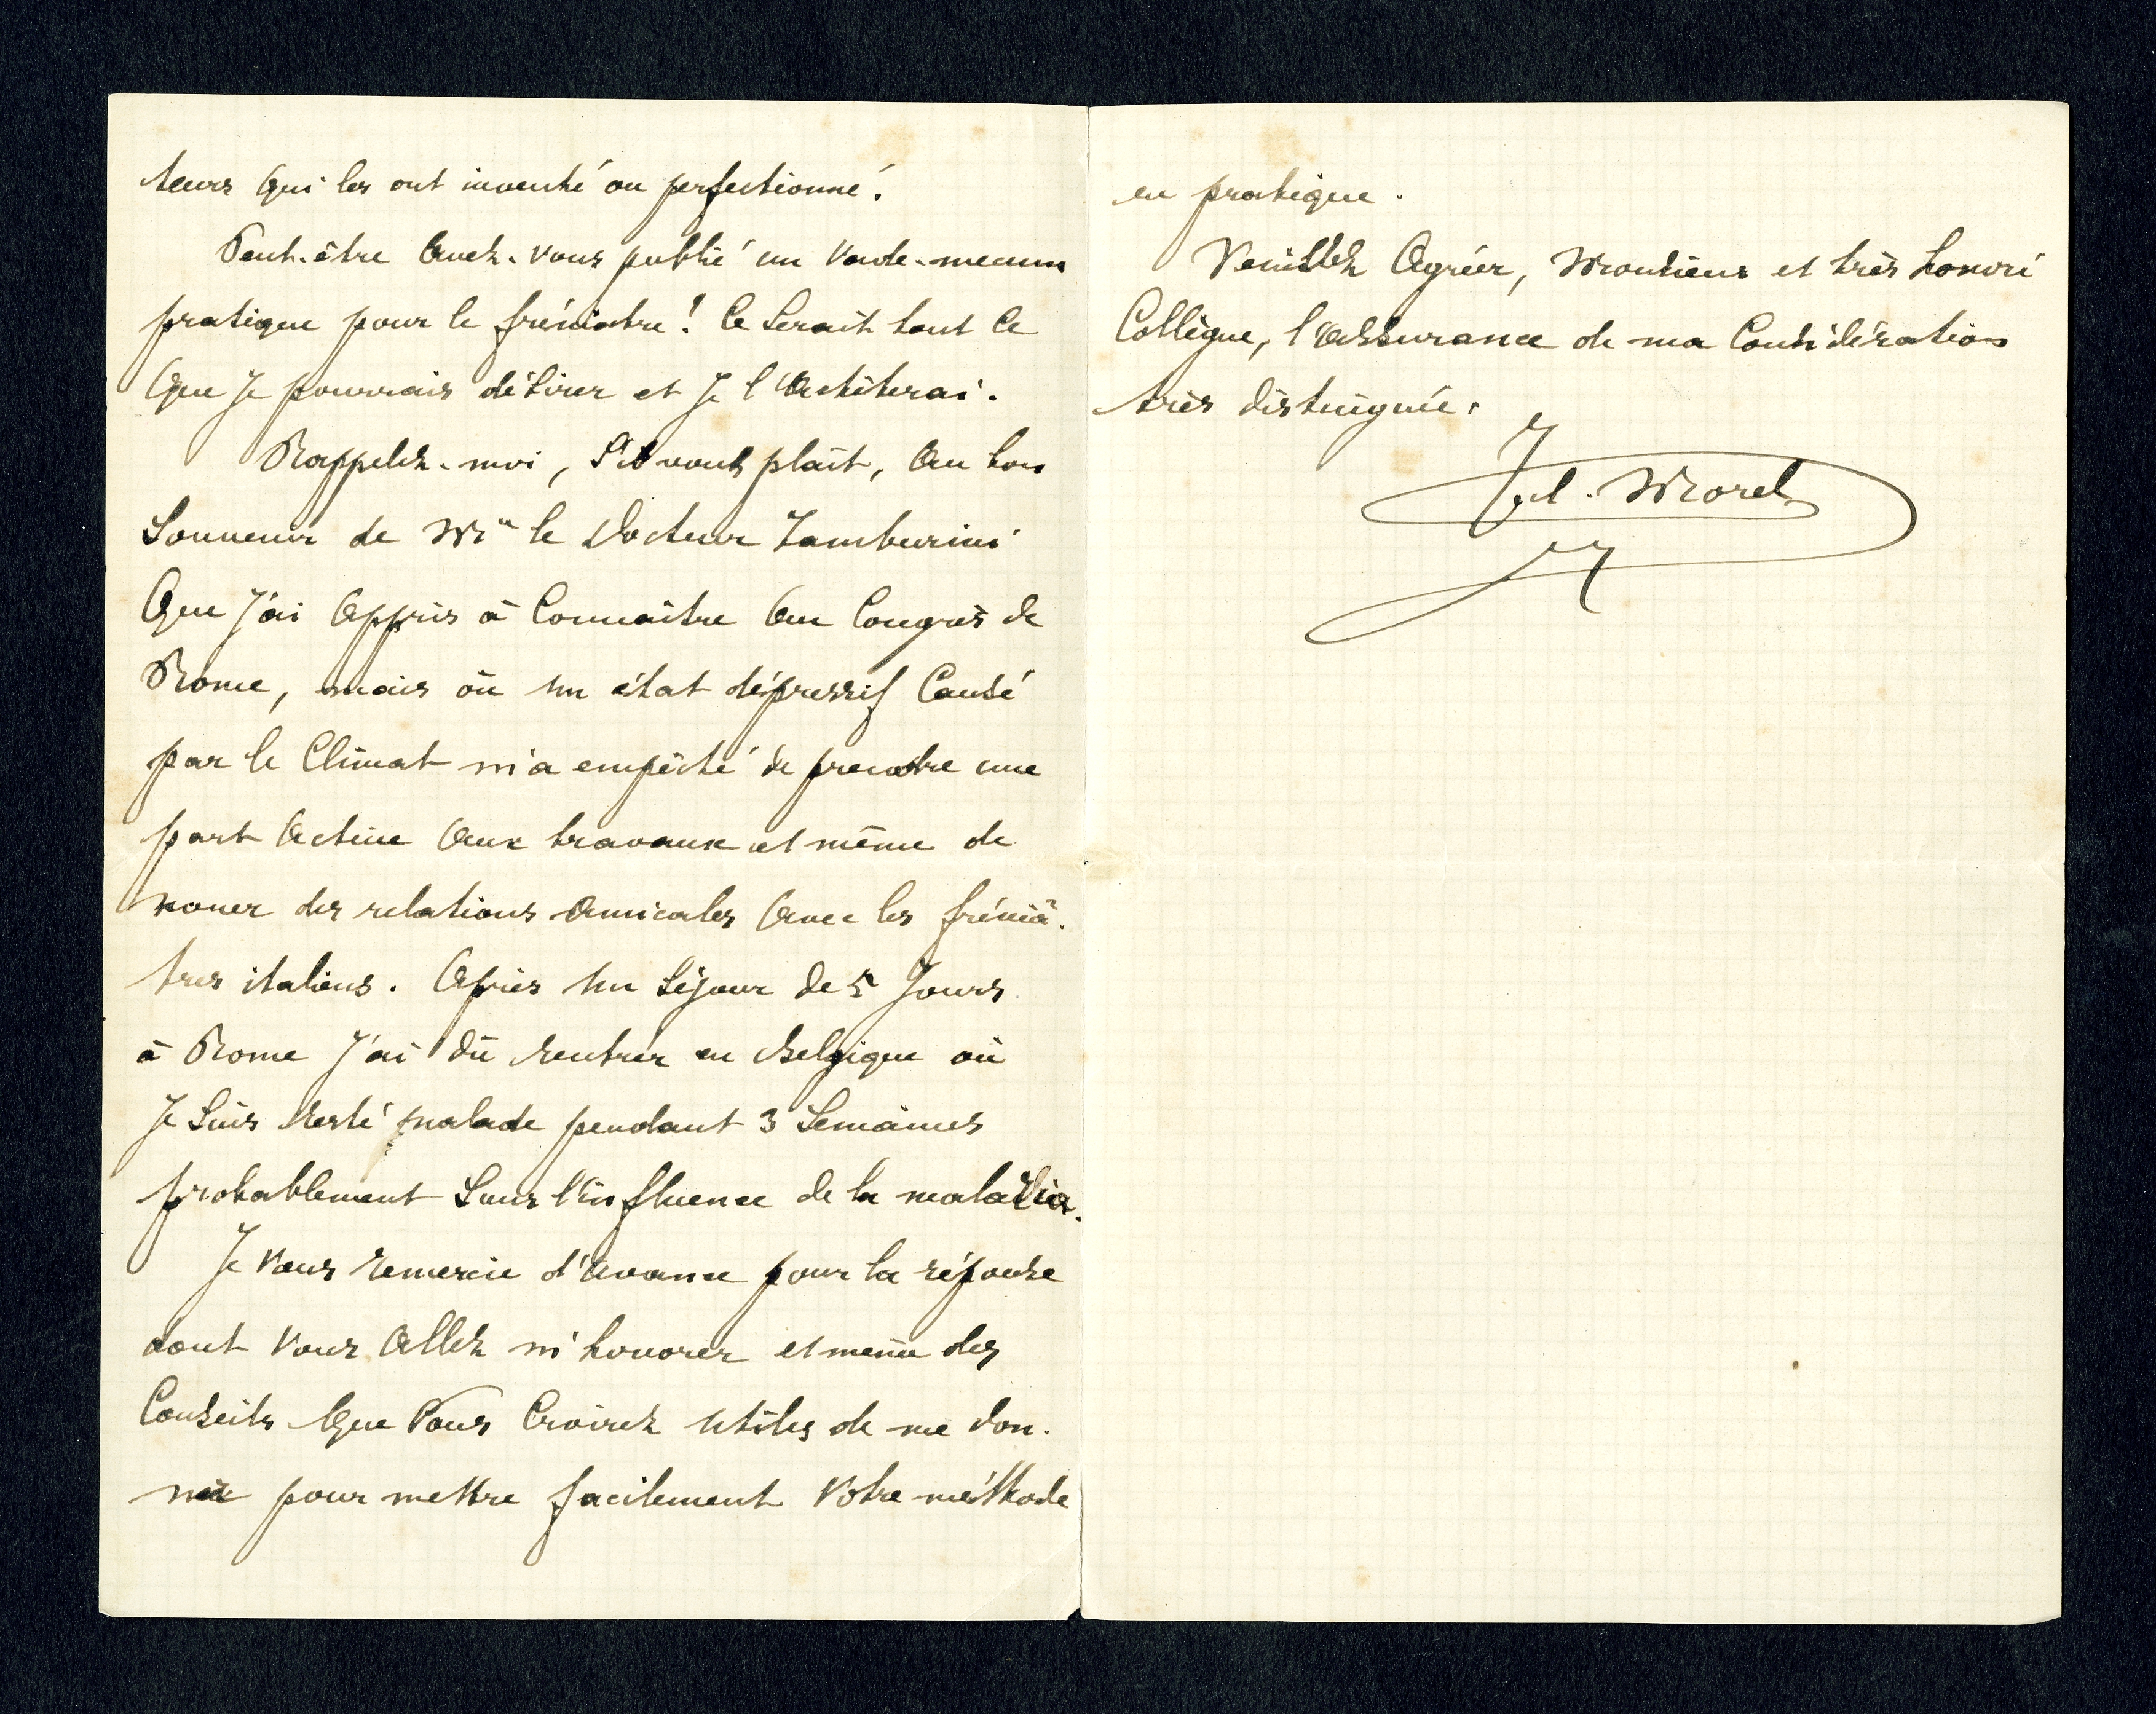 teurs qui les ont inventé ou perfectionné.
Peut-être avez-vous publié un Vade-mecum
pratique pour le fréniatre! Ce serait tout ce
que je pourrais désirer et je l'achèterai.
Rappelez-moi, s'il vous plaît, au bon
souvenir de Mr le Docteur Tamburini
que j'ai appris à connaître au Congrès de
Rome, mais où un état dépressif causé
par le climat m'a empêché de prendre une
part active aux travaux et même de
nouer des relations amicales avec les frénia-
tres italiens. Après un séjour de 5 jours
à Rome j'ai dû rentrer en Belgique où
je suis resté malade pendant 3 semaines
probablement sous l'influence de la
Je vous remercie d'avance pour la réponse
dont vous allez m'honorer et même des
conseils que vous croirez utiles de me don-
ner pour mettre facilement votre méthode
en pratique.
Veuillez agréer, Monsieur et très honoré
Collègue, l'assurance de ma considération
très distinguée.
Jul. Morel